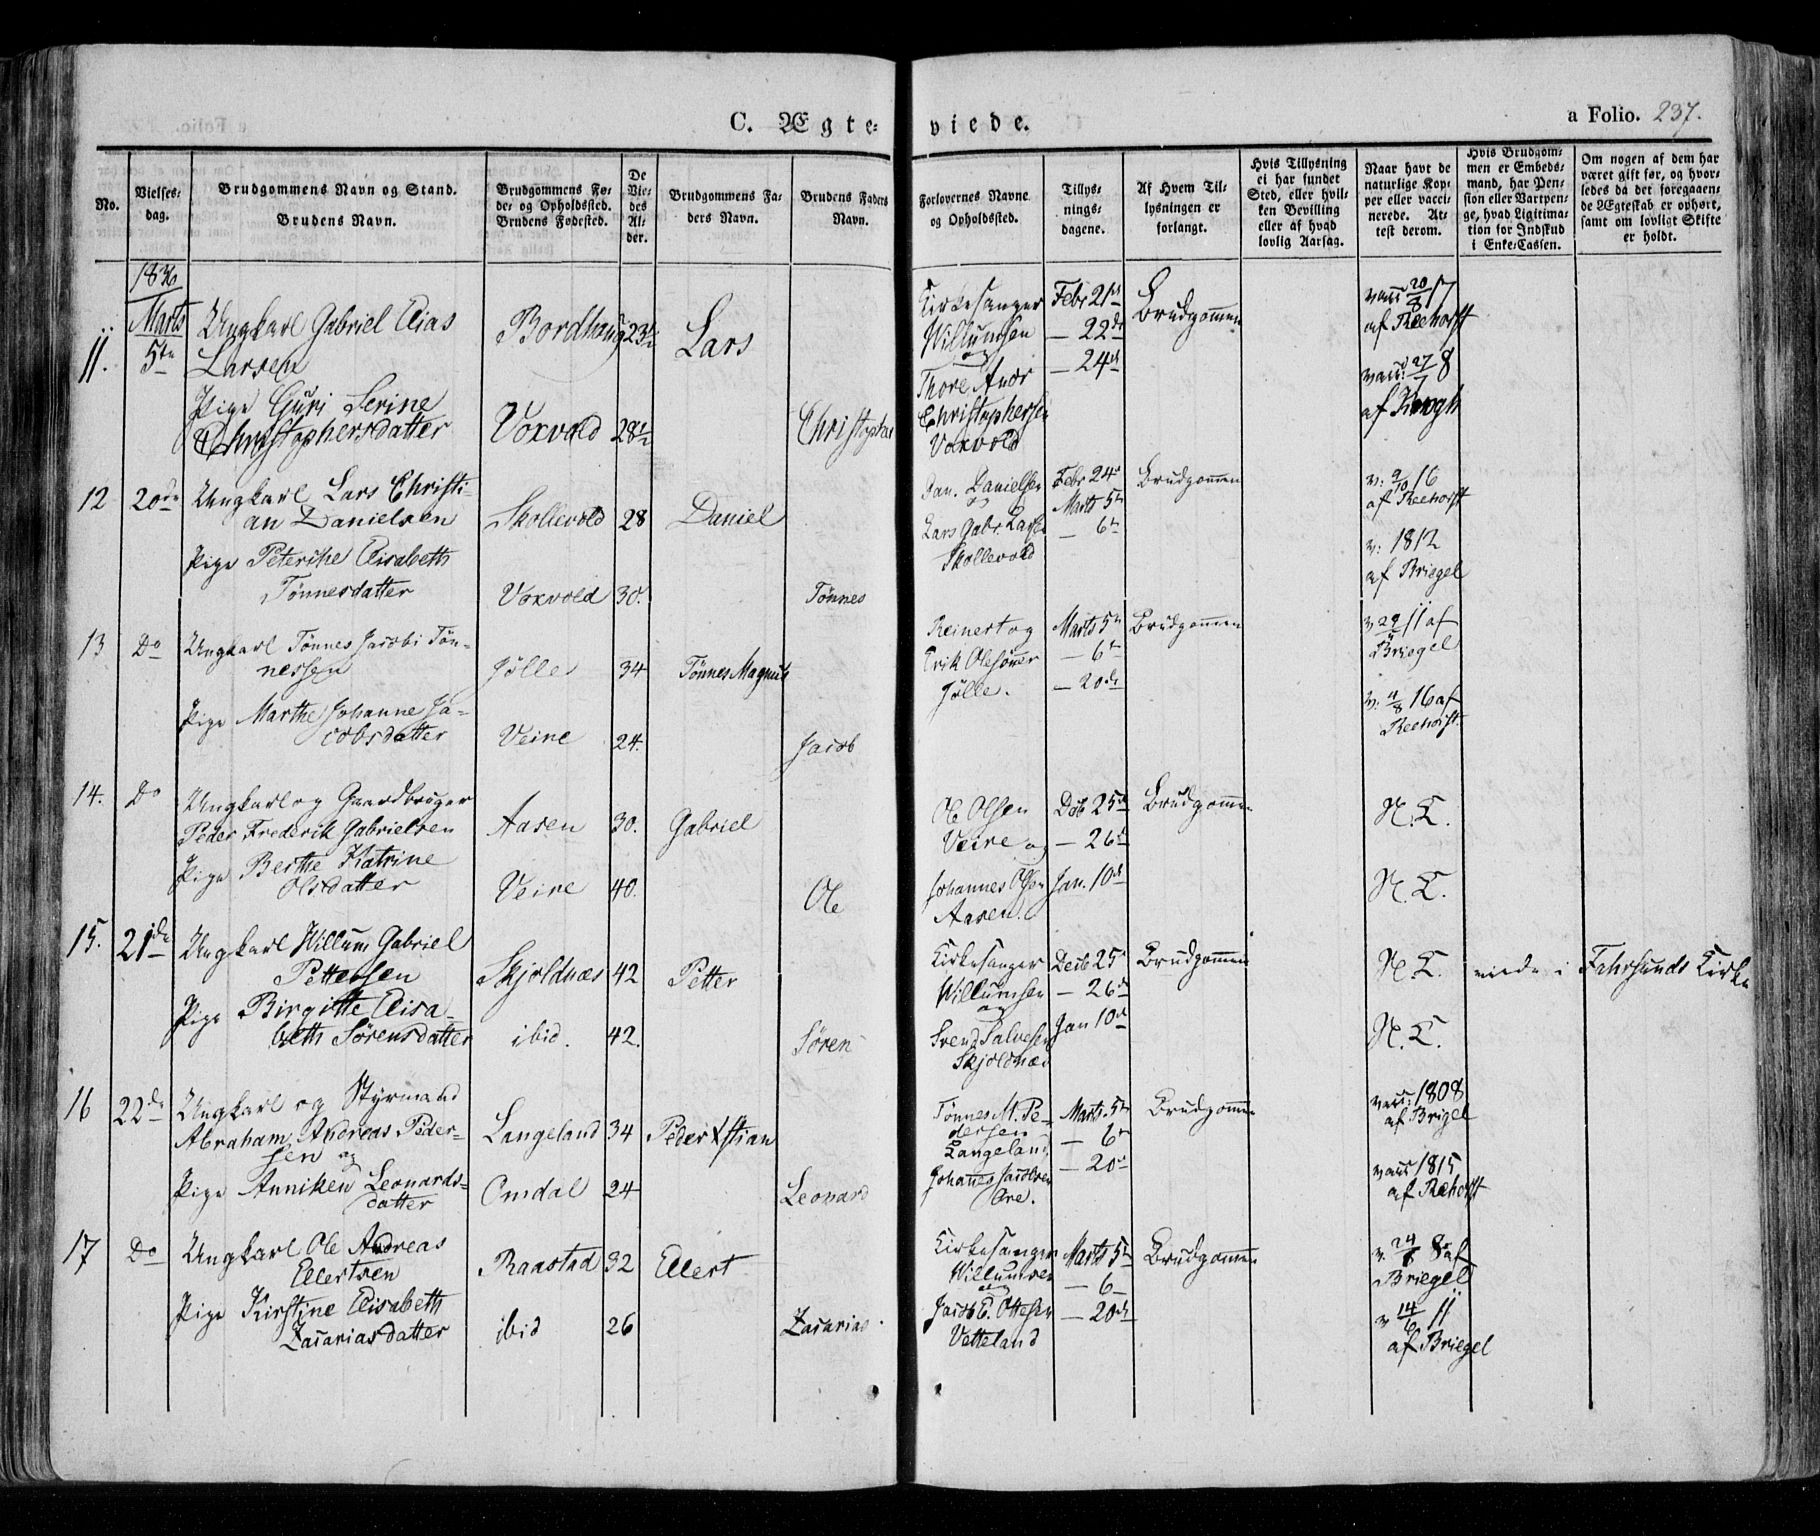 C. Ægte-viede.
a Folio. 237.
No.
Vielses-
dag.
Brudgommens Navn og Stand.
Brudens Navn.
Brudgommens Fø-
de- og Opholdssted.
Brudens Fødested.
De
Vie-
des
Al-
der.
Brudgommens Fa-
ders Navn.
Brudens Faders
Navn.
Forlovernes Navne
og Opholdssted.
Tillys-
nings-
dagene.
Af Hvem Til-
lysningen er
forlangt.
Hvis Tillysning
ei har fundet
Sted, eller hvil-
ken Bevilling
eller af hvad
lovlig Aarsag.
Naar havt de
naturlige Kop-
per eller vacci-
nerede. At-
test derom.
Hvis Brudgom-
men er Embeds-
mand, har Pen-
sion eller Vartpen-
ge, hvad Ligitima-
tion for Indskud
i Enke-Cassen.
Om nogen af dem har
været gift før, og hvor-
ledes da det foregaaen-
de Ægteskab er ophørt,
samt om lovligt Skifte
er holdt.
1836
Marts
11. 5te Ungkarl Gabriel Elias
Larsen
Bordhaug 23½ Lars
Pige Guri Serine
Christophersdatter
Voxvold 28½ Christopher
Kirkesanger
Willumsen
og
Thore Andr
Christophersen
Voxvold
Febr 21de
— 22de
— 24de
Brudgommen
vacc 20/8 17
af Reehorst
vacc: 27/7 8
af Krogh
12 20de Ungkarl Lars Christi-
an Danielsen
Skollevold 28 Daniel
Pige Peterike Elisabeth
Tønnesdatter
Voxvold 30. Tønnes
Dan. Danielsen
og
Lars Gabr. Larsen
Skollevold
Febr 24d
Marts 5te
— 6te
Brudgommen
v: 9/10 16
af Reehorst
v: 1812
af Briegel
13 Do Ungkarl Tønnes Jacobi Tøn-
nessen
Jølle 34 Tønnes Magnus
Pige Marthe Johanne Ja-
cobsdatter
Veire 24. Jacob
Reinert og
Erik Olesøner
Jølle.
Marts 5te
— 6te
— 20de
Brudgommen
v 29/8 11 af
Briegel
v: 4/8 16 af
Reehorst.
14. Do Ungkarl og Gaardbruger
Peder Frederik Gabrielsen
Aasen 30. Gabriel
Pige Berthe Katrine
Olsdatter
Veire 40. Ole
Ole Olsen
Veire og
Johannes Olsen
Aasen.
Dcb 25de
— 26de
Jan. 10de
Brudgommen
N. C.
N. C.
15. 21de Ungkarl Willum Gabriel
Pettersen
Skjoldnæs 42 Petter
Pige Birgitte Elisa-
beth Sørensdatter
ibid. 42. Søren
Kirkesanger
Willumsen
og
Svend Salvesen
Skjoldnæs
Decb 25de
— 26de
Jan 10de
Brudgommen
N. C. viede i Fahrsunds Kirke
N. C.
16 22de Ungkarl og Styrmand
Abraham Andreas Peder-
sen og
Langeland 34 Peder Xstian
Pige Anniken Leonards-
datter
Omdal 24 Leonard
Tønnes M. Pe-
dersen
Langeland,
Johannes Jacobsen
Ore.
Marts 5te
— 6te
— 20de
Brudgommen
vacc: 1808
af Brigel
vacc 1815
af Rehorst
17 Do Ungkarl Ole Andreas
Ellertsen
Raastad 32 Ellert
Pige Kirstine Elisabeth
Zacariasdatter
ibid 26 Zacarias.
Kirkesanger
Willumsen
og
Jacob E. Ottesen
Vetteland
Marts 5te
— 6
— 20de
Brudgommen
v. 24/8 8 af
Briegel
v 14/6 11
af Briegel